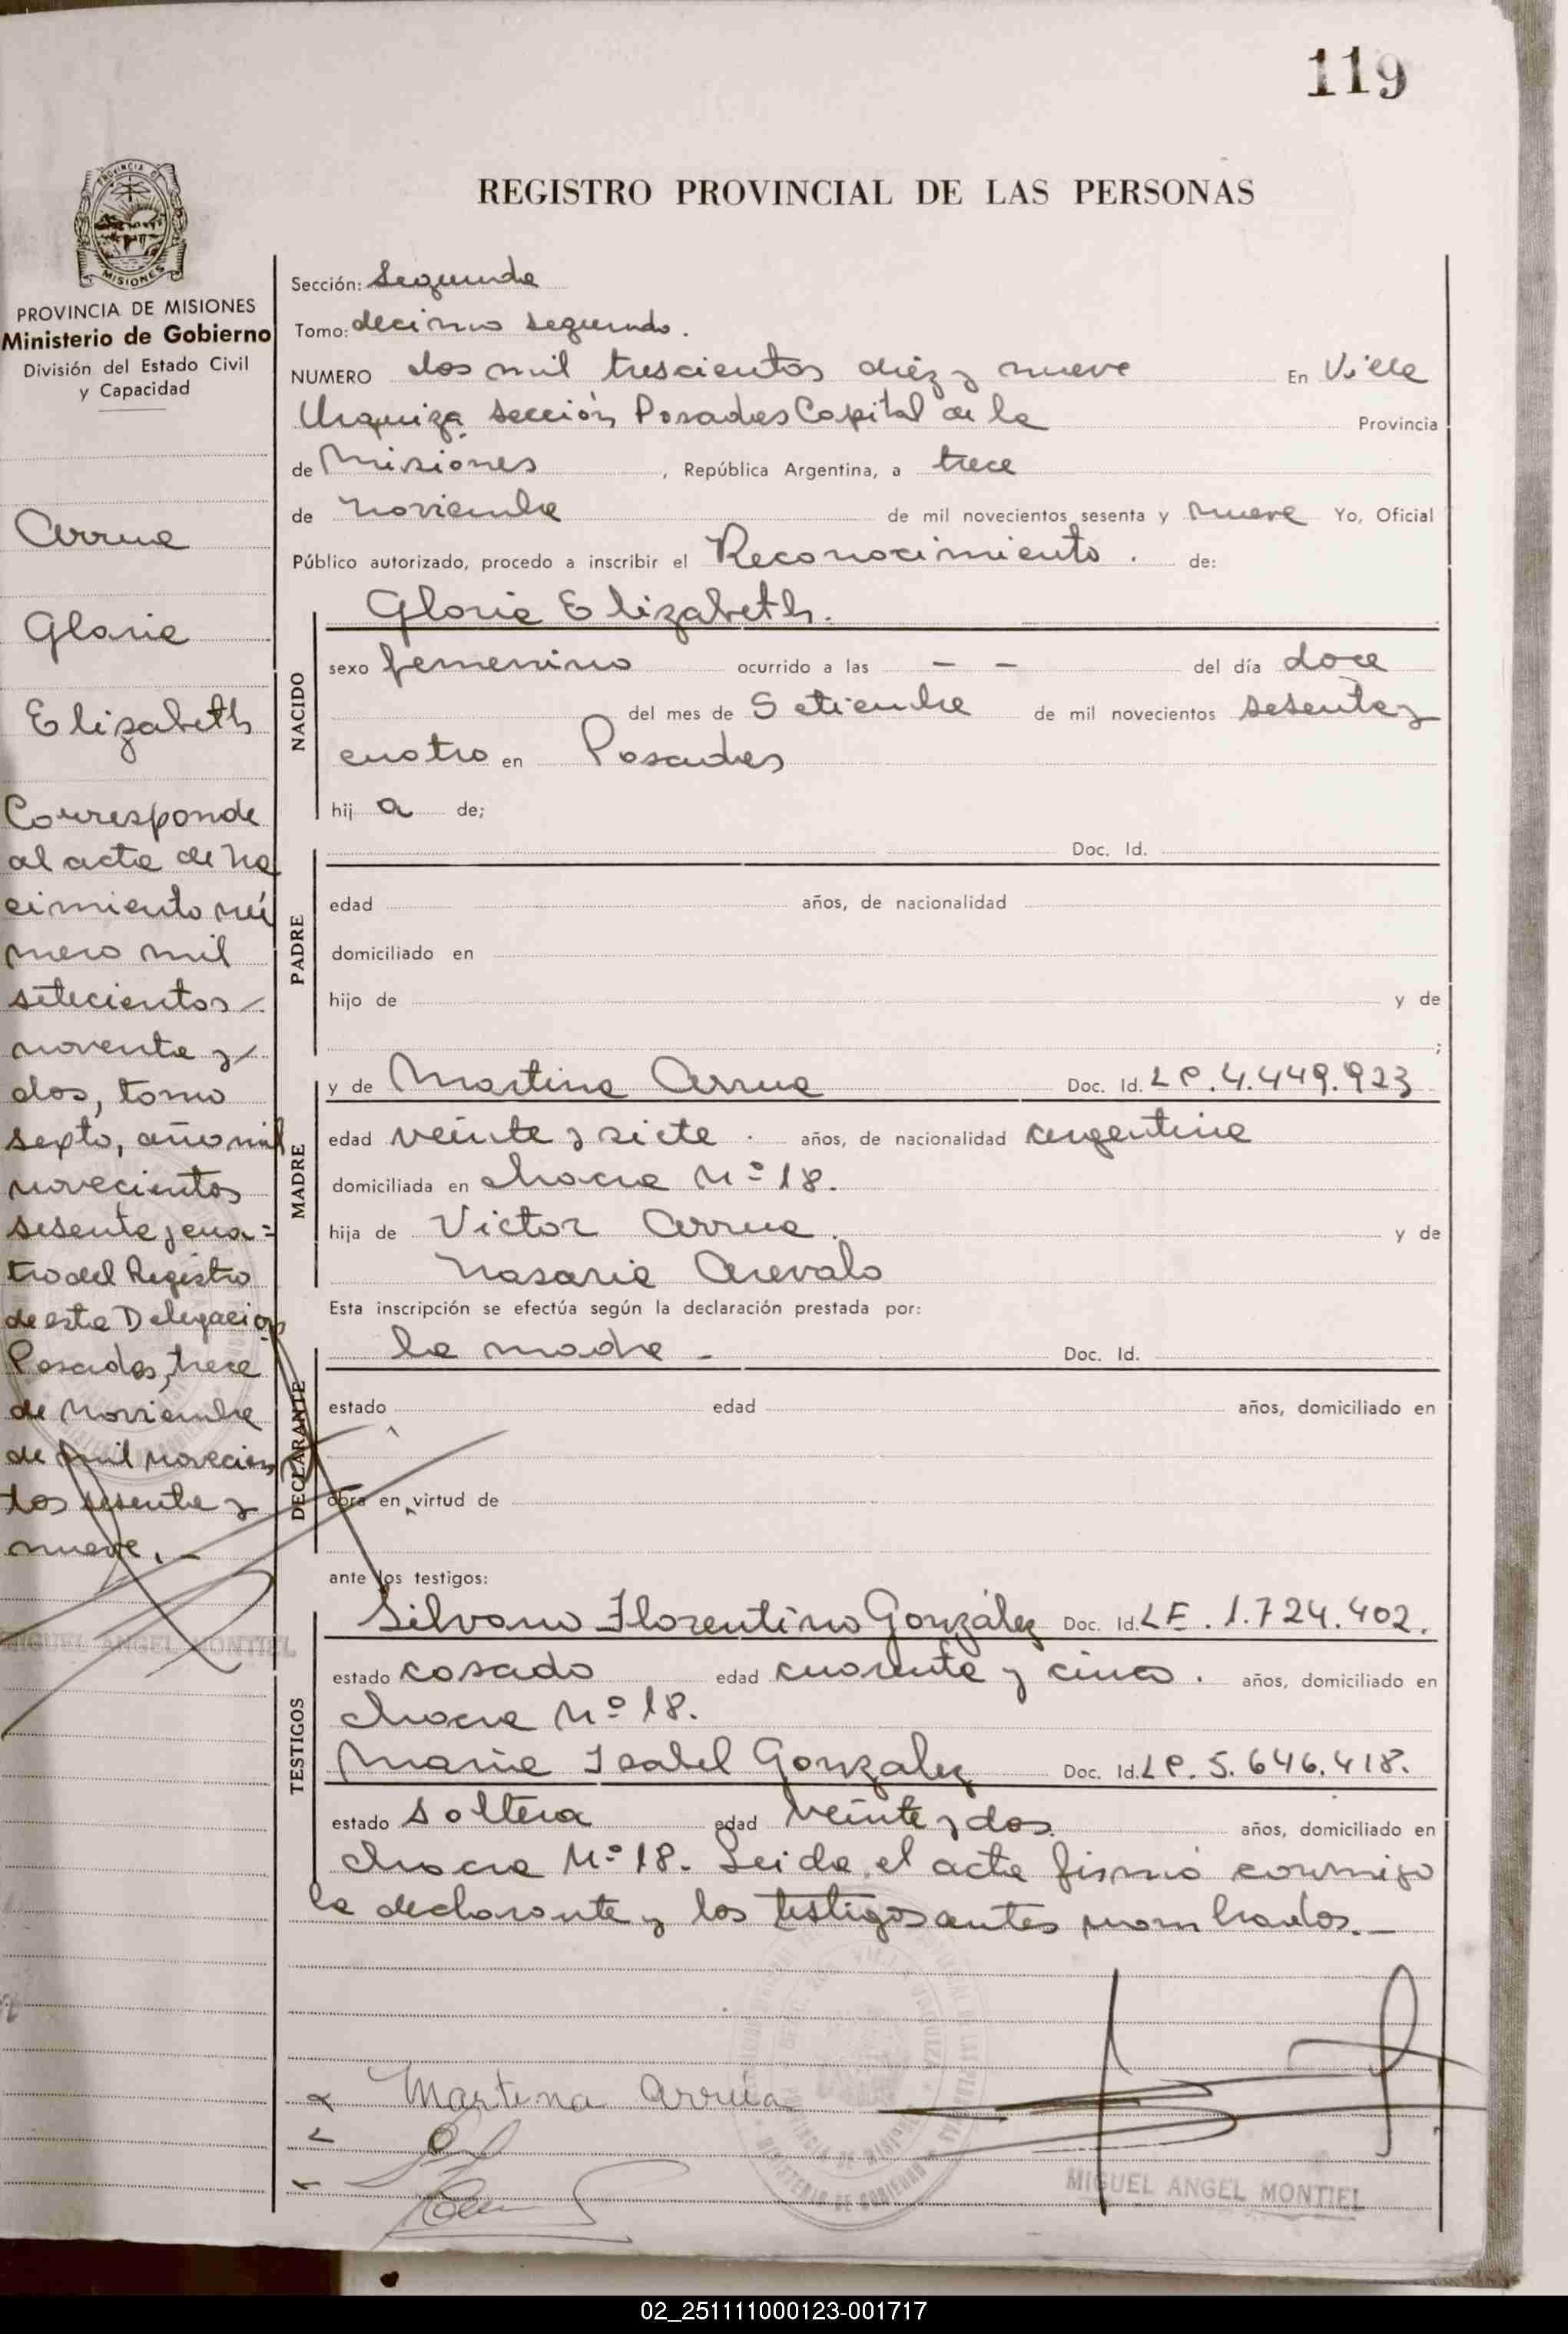 119
PROVINCIA DE
MISIONES
PROVINCIA DE MISIONES
Ministerio de Gobierno
División del Estado Civil
y Capacidad
Arrua
Gloria
Elizabeth
Corresponde
al acta de na
cimiento nú
mero mil
setecientos
noventa y
dos, tomo
sexto, año mil
novecientos
sesenta y cua=
tro del Registro
de esta Delegación
Posadas, trece
de Noviembre
de mil novecien
tos sesenta y
nueve.-
MIGUEL ANGEL MONTIEL
REGISTRO PROVINCIAL DE LAS PERSONAS
Sección: Segunda
Tomo: decimo segundo.
NUMERO dos mil trescientos diez y nueve En Villa
Urquiza sección Posadas Capital de la Provincia
de Misiones, República Argentina, a trece
de noviembre de mil novecientos sesenta y nueve Yo, Oficial
Público autorizado, procedo a inscribir el Reconocimiento. de:
NACIDO
Gloria Elizabeth.
sexo femenino ocurrido a las - - del día doce
del mes de Setiembre de mil novecientos sesenta y
cuatro en Posadas
hij a de;
PADRE
Doc. Id.
edad años, de nacionalidad
domiciliado en
hijo de y de
;
MADRE
y de Martina Arrua Doc. Id. LC. 4.449.923
edad veinte y siete. años, de nacionalidad argentina
domiciliada en chacra Nº 18.
hija de Victor Arrua. y de
Nasaria Arevalo
Esta inscripción se efectúa según la declaración prestada por:
DECLARANTE
la madre - Doc. Id.
estado edad años, domiciliado en
obra en virtud de
ante los testigos:
TESTIGOS
Silvano Florentino González Doc. Id. LE. 1.724.402.
estado casado edad cuarenta y cinco. años, domiciliado en
chacra Nº 18.
Maria Isabel Gonzalez Doc. Id. LC. 5.646.418.
estado soltera edad veinte y dos. años, domiciliado en
chacra Nº 18. Leida el acta firmó conmigo
la declarante y los testigos antes nombrados.-
Martina Arrúa
MIGUEL ANGEL MONTIEL
02_251111000123-001717